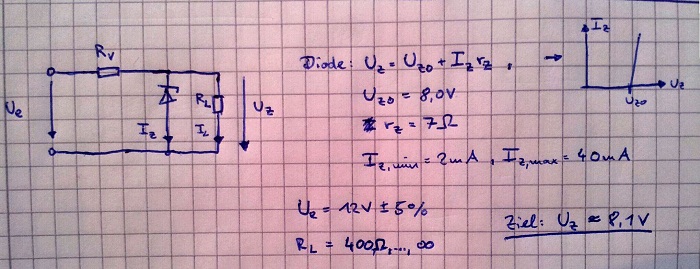 R_V
U_e
I_Z
R_L
I_L
U_Z
Diode: U_Z = U_Z0 + I_Z r_Z , →
U_Z0 = 8,0V
r_Z = 7Ω
I_Z,min = 2mA , I_Z,max = 40mA
U_e = 12V ± 5%
R_L = 400Ω,...,∞
I_Z
U_Z
U_Z0
Ziel: U_Z ≈ 8,1V